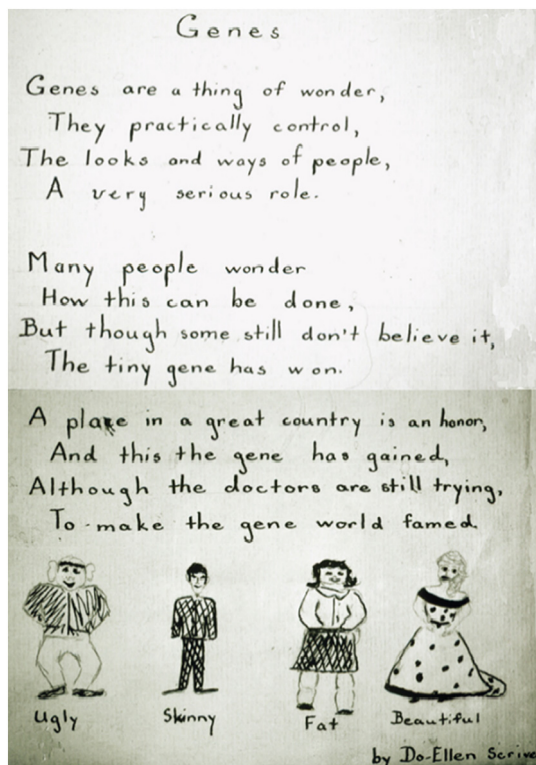 Genes
Genes are a thing of wonder,
They practically control,
The looks and ways of people,
A very serious role.
Many people wonder
How this can be done,
But though some still don't believe it,
The tiny gene has won.
A place in a great country is an honor,
And this the gene has gained,
Although the doctors are still trying,
To make the gene world famed.
Ugly Skinny Fat Beautiful
by Do-Ellen